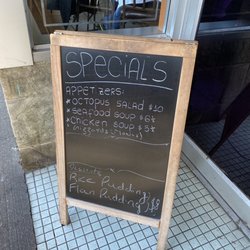 SPECIALS
APPETIZERS:
*OCTOPUS SALAD $10
*SEAFOOD SOUP $6½
*CHICKEN SOUP $5½
Rice Pudding
Flan Pudding